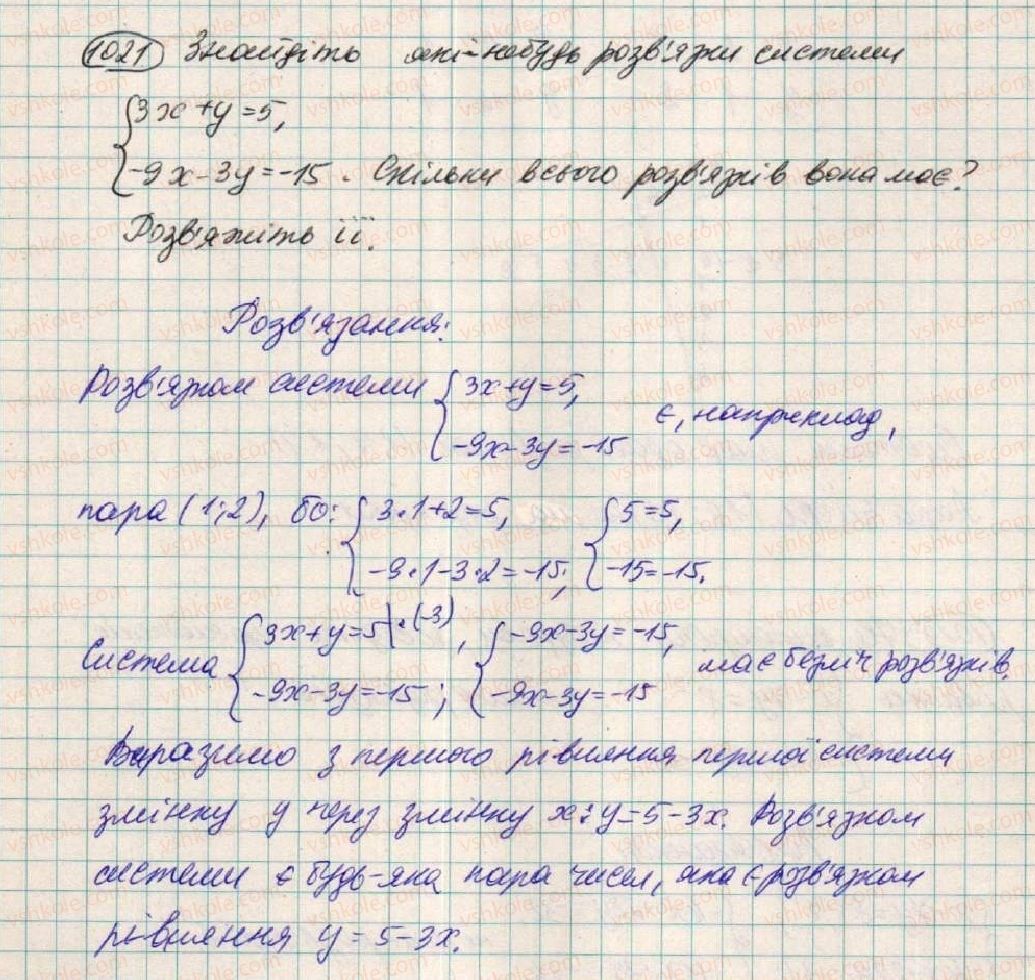 1021 Знайдіть які-небудь розв'язки системи
{3x+y=5,
{-9x-3y=-15. Скільки всього розв'язків вона має?
Розв'яжіть її.
Розв'язання:
Розв'язком системи {3x+y=5, {-9x-3y=-15 є, наприклад,
пара (1;2), бо: {3·1+2=5, {-9·1-3·2=-15; {5=5, {-15=-15.
Система {3x+y=5|·(-3), {-9x-3y=-15; {-9x-3y=-15, {-9x-3y=-15 має безліч розв'язків.
Виразимо з першого рівняння першої системи
змінну y через змінну x: y=5-3x. Розв'язком
системи є будь-яка пара чисел, яка є розв'язком
рівняння y=5-3x.
vshkole.com